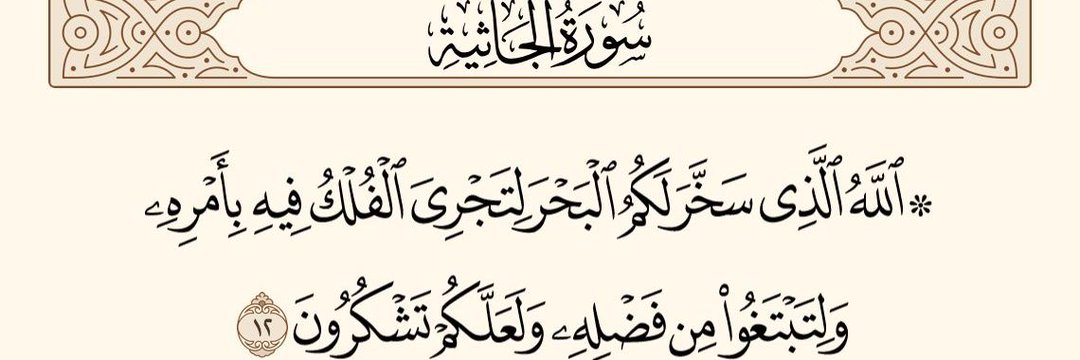 سُورَةُ الجَاثِيَةِ
۞ ٱللَّهُ ٱلَّذِى سَخَّرَ لَكُمُ ٱلْبَحْرَ لِتَجْرِىَ ٱلْفُلْكُ فِيهِ بِأَمْرِهِۦ
وَلِتَبْتَغُوا۟ مِن فَضْلِهِۦ وَلَعَلَّكُمْ تَشْكُرُونَ ١٢